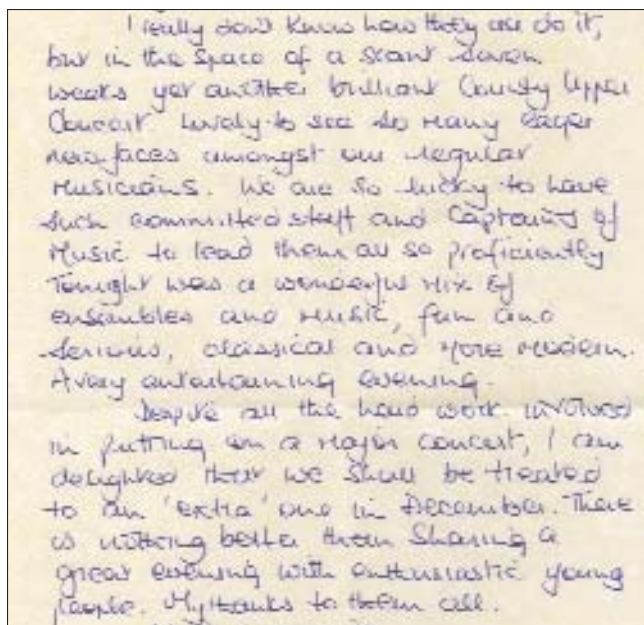 I really don't know how they all do it,
but in the space of a scant seven
weeks yet another brilliant County Upper
Concert. Lovely to see so many eager
new faces amongst our regular
musicians. We are so lucky to have
such committed staff and Captains of
Music to lead them all so proficiently
Tonight was a wonderful mix of
ensembles and music, fun and
serious, classical and more modern.
A very entertaining evening.
Despite all the hard work involved
in putting on a major concert, I am
delighted that we shall be treated
to an 'extra' one in December. There
is nothing better than sharing a
great evening with enthusiastic young
people. My thanks to them all.